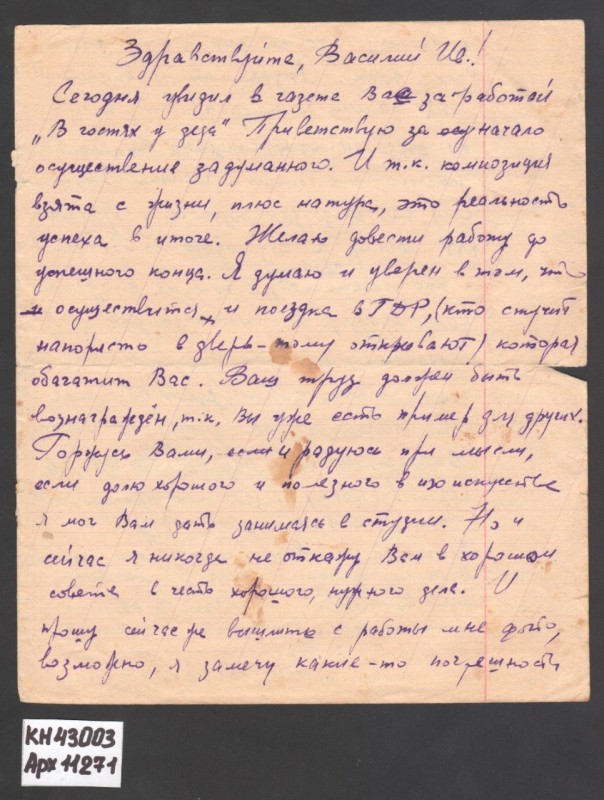 Здравствуйте, Василий Ив.!
Сегодня увидил в газете Вас за работой
„В гостях у деда" Приветствую за начало
осуществение задуманного. И т.к. композиция
взята с жизни, плюс натура, это реальность
успеха в итоге. Желаю довести работу до
успешного конца. Я думаю и уверен в том, что
осуществится и поездка в ГДР, (кто стучит
напористо в дверь – тому открывают) которая
обагатит Вас. Ваш труд должен быть
вознаграждён, т.к. Вы уже есть пример для других.
Горжусь Вами, если и радуюсь при мысли,
если долю хорошого и полезного в изоискустве
я мог Вам дать занимаясь в студии. Но и
сейчас я никогда не откажу Вам в хорошом
совете в честь хорошого, нужного дела. И
прошу сейчас же вышлите с работы мне фото,
возможно, я замечу какие-то погрешность
КН 43003
Арх 11271